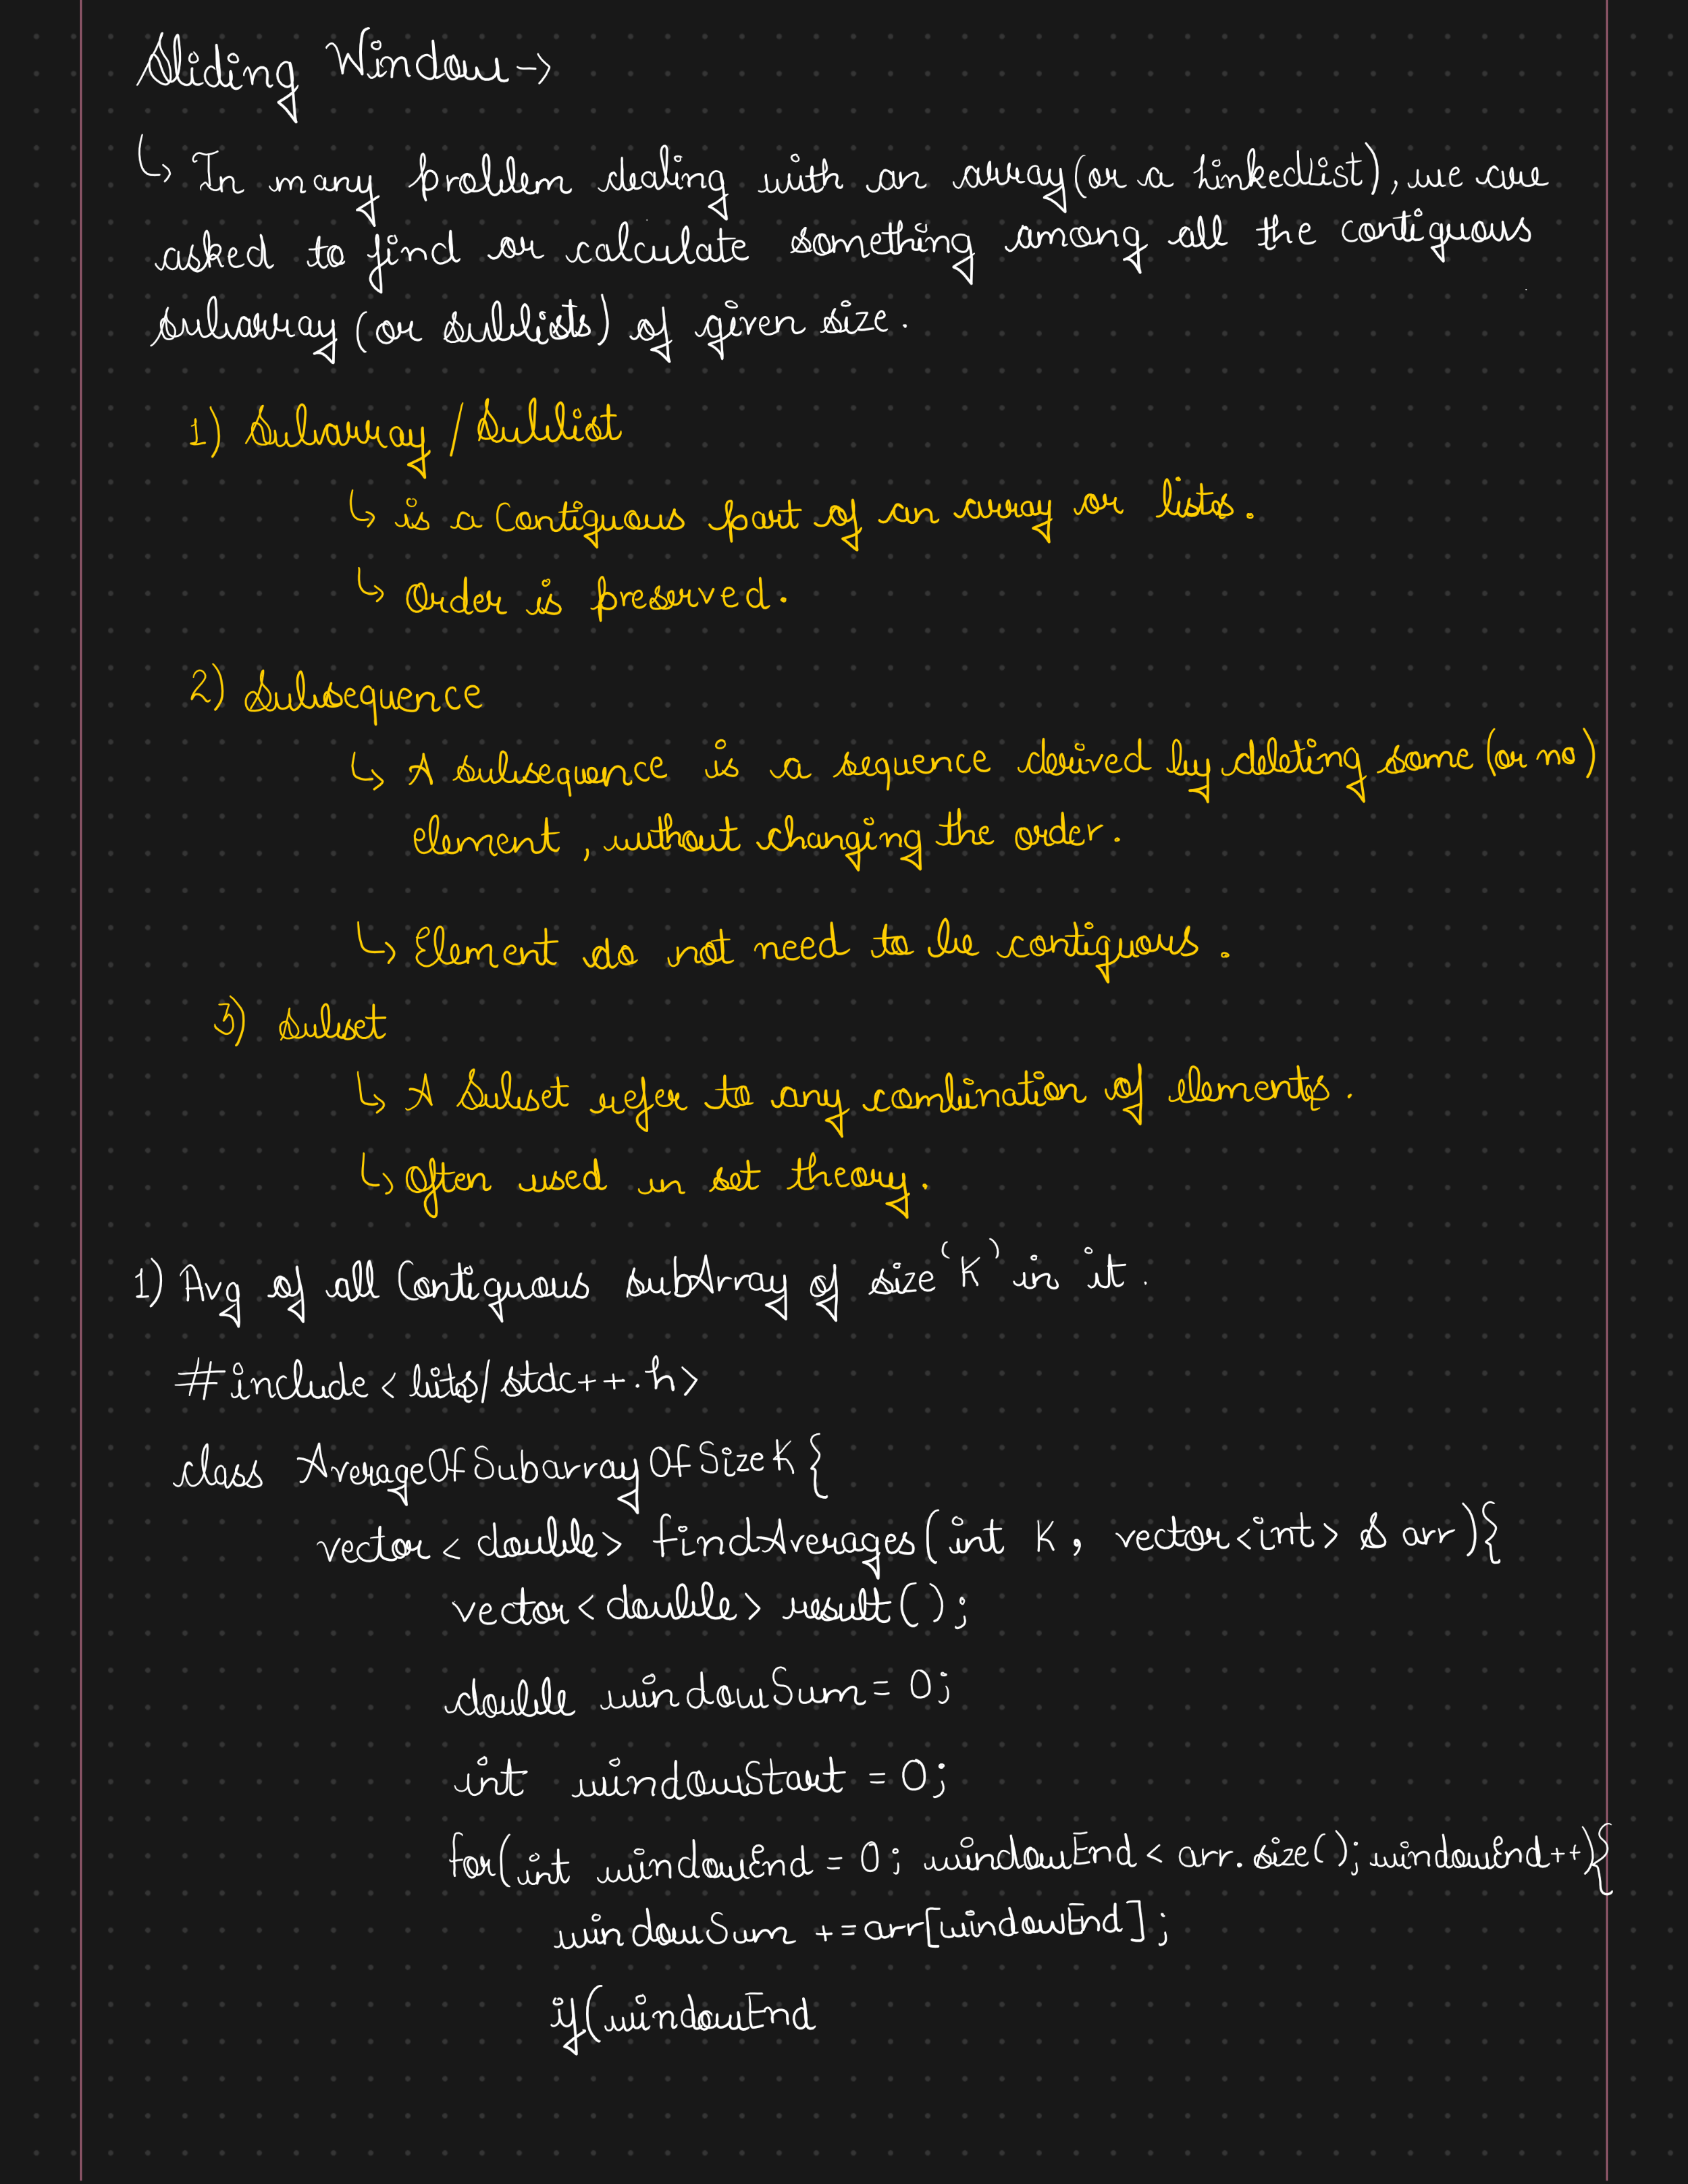 Sliding Window →
↳ In many problem dealing with an array (or a LinkedList), we are
asked to find or calculate something among all the contiguous
subarray (or sublists) of given size.
1) Subarray / Sublist
↳ is a Contiguous part of an array or lists.
↳ Order is preserved.
2) Subsequence
↳ A subsequence is a sequence derived by deleting some (or no)
element, without changing the order.
↳ Element do not need to be contiguous.
3) subset
↳ A Subset refer to any combination of elements.
↳ Often used in set theory.
1) Avg of all Contiguous subArray of size 'K' in it.
#include <bits/stdc++.h>
class AverageOfSubarrayOfSizeK {
vector<double> findAverages(int K, vector<int> & arr){
vector<double> result();
double windowSum = 0;
int windowStart = 0;
for(int windowEnd = 0; windowEnd < arr.size(); windowEnd++){
windowSum += arr[windowEnd];
if(windowEnd